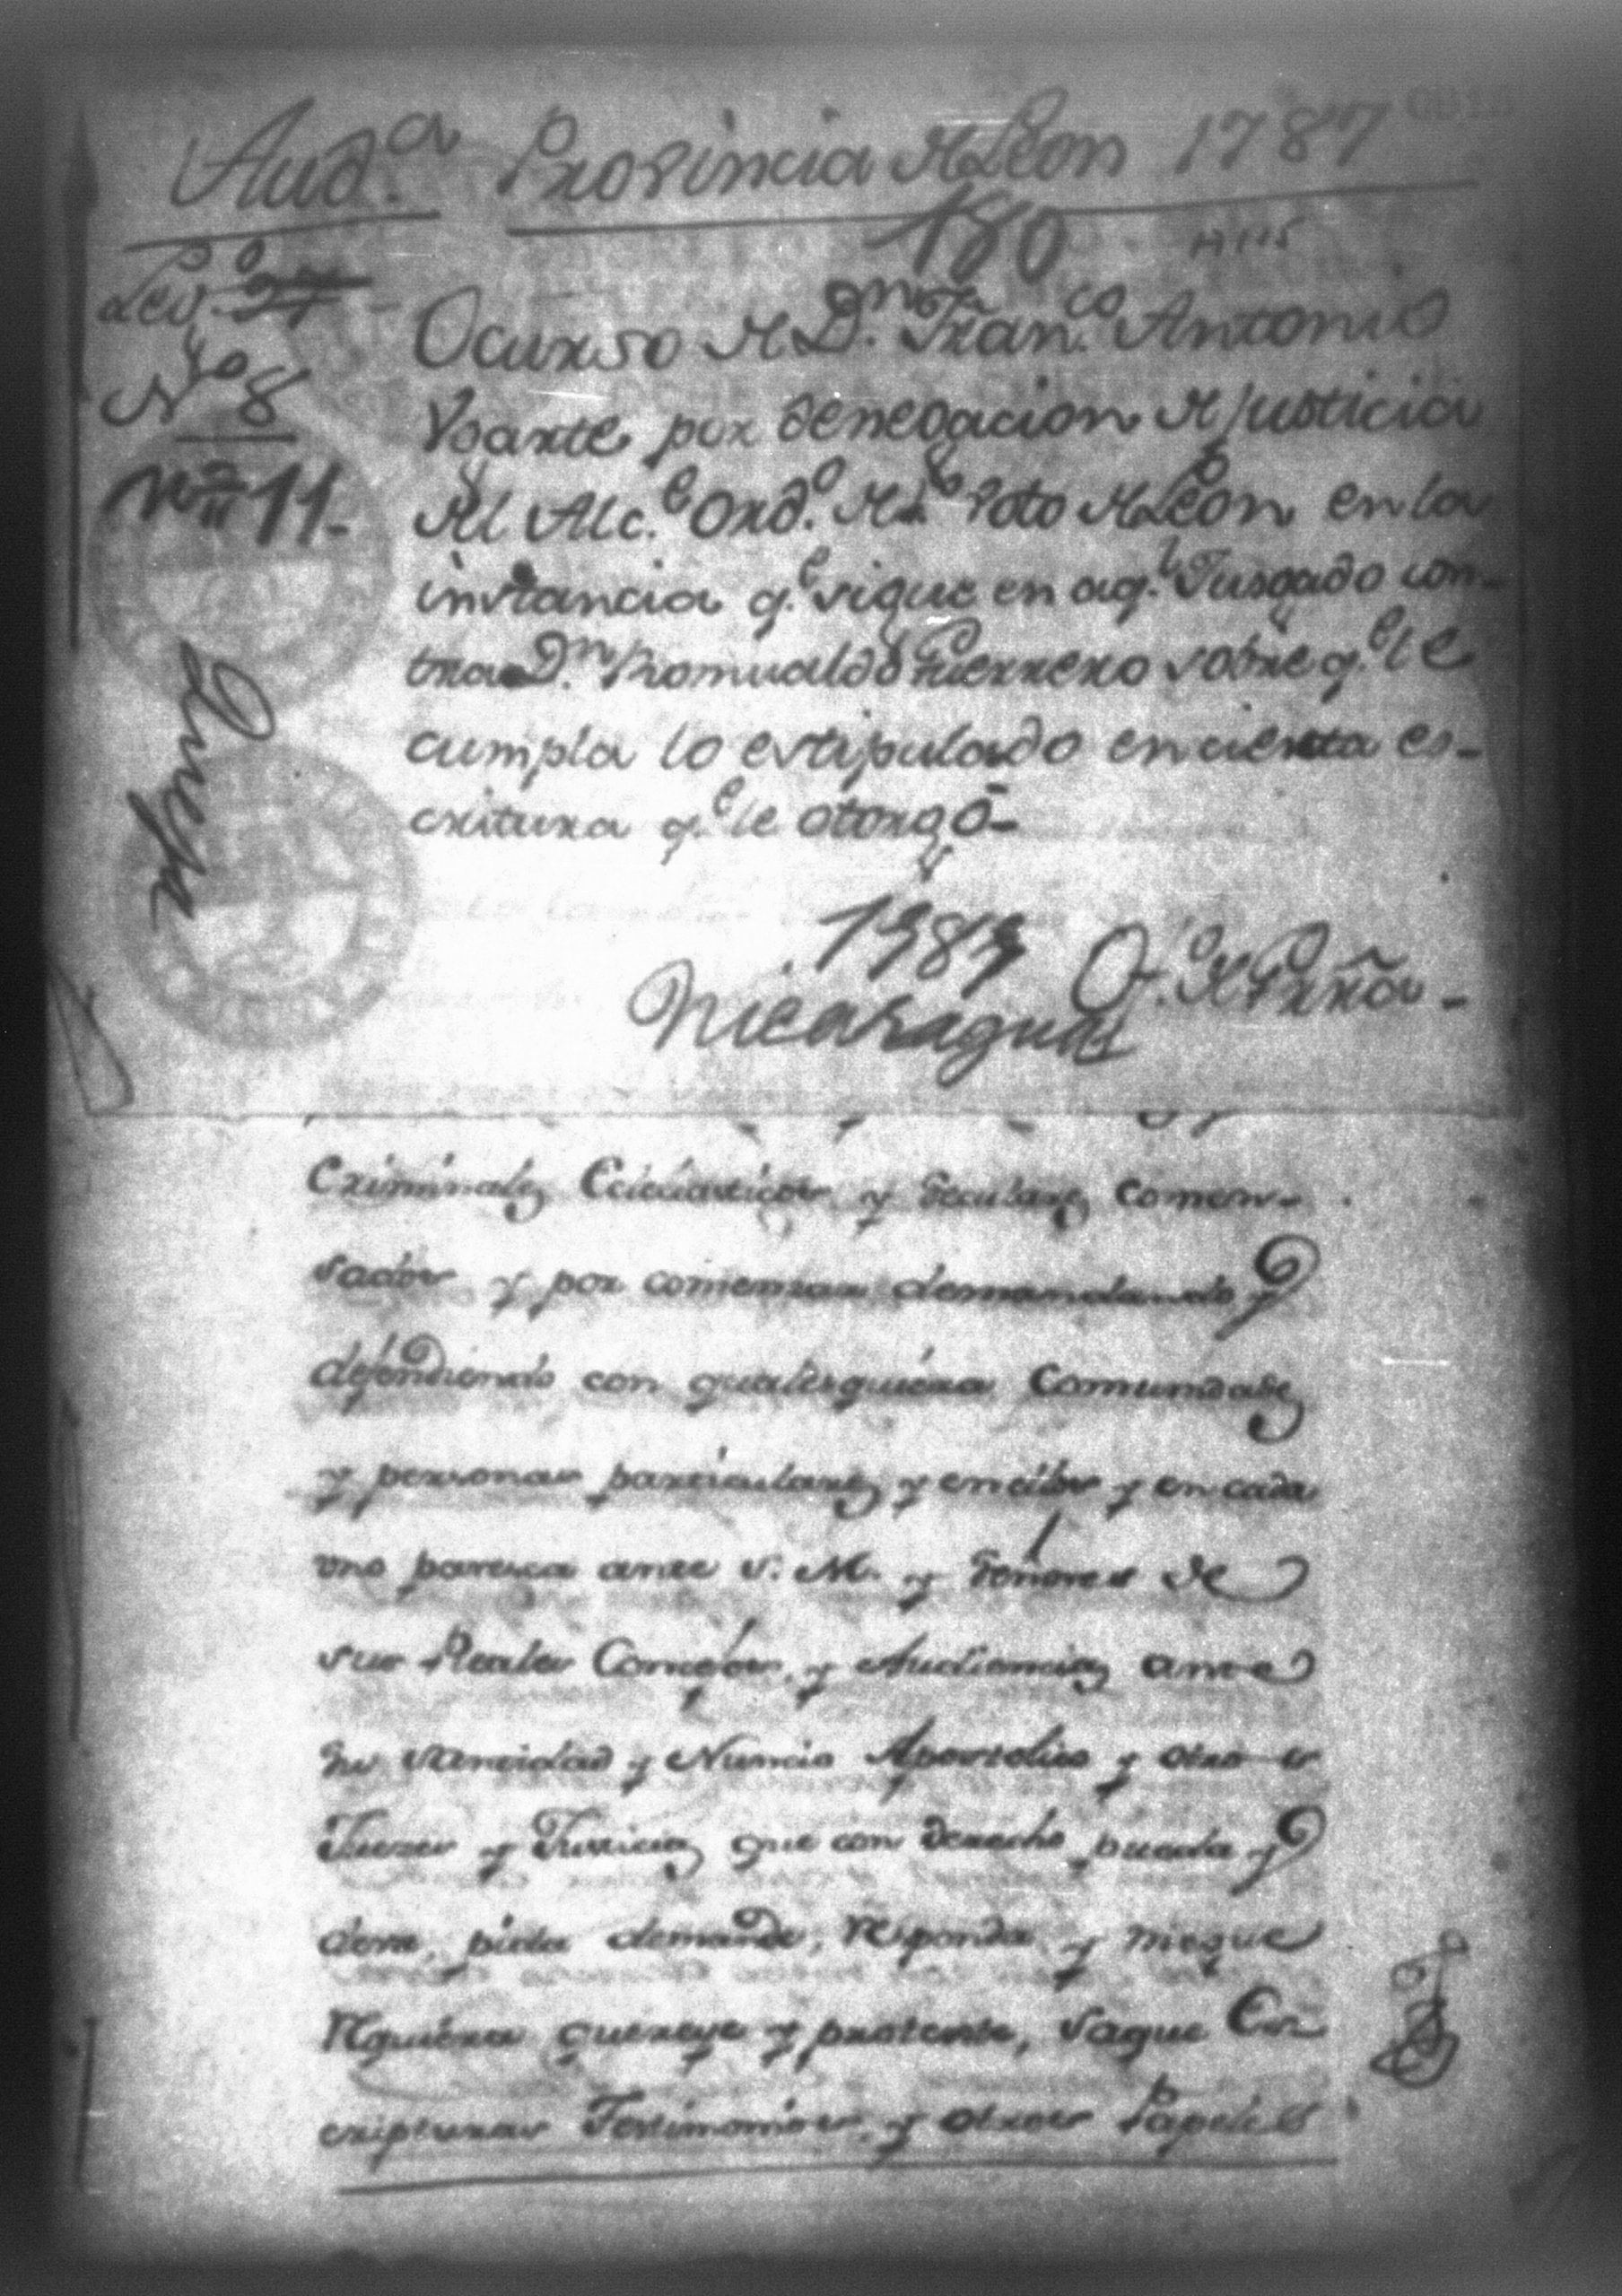 Aud.ª Provincia de Leon 1787
180
A1.15
Leg.º 27
N.º 8
n.º 11.
Ocurso de D.n Fran.co Antonio
Ysarte por denegacion de justicia
del Alc.e Ord.º de Leon en la
instancia q.e sigue en aq.l Jusgado con-
tra D.n Romualdo Guerrero sobre q.e le
cumpla lo estipulado en cierta es-
critura q.e le otorgó-
1787
Nicaragua
Criminales Eclesiasticos y Seculares comen-
sados y por comensar demandando y
defendiendo con qualesquiera Comunidades
y personas particulares y en ellos y en cada
uno paresca ante S. M. y Señores de
sus Reales Consejos, y Audiencias ante
su Santidad y Nuncio Apostolico y otros
Jueses y Justicias que con derecho pueda y
deva, pida demande, responda y niegue
requiera querelle y proteste, saque Es
cripturas Testimonios, y otros Papeles